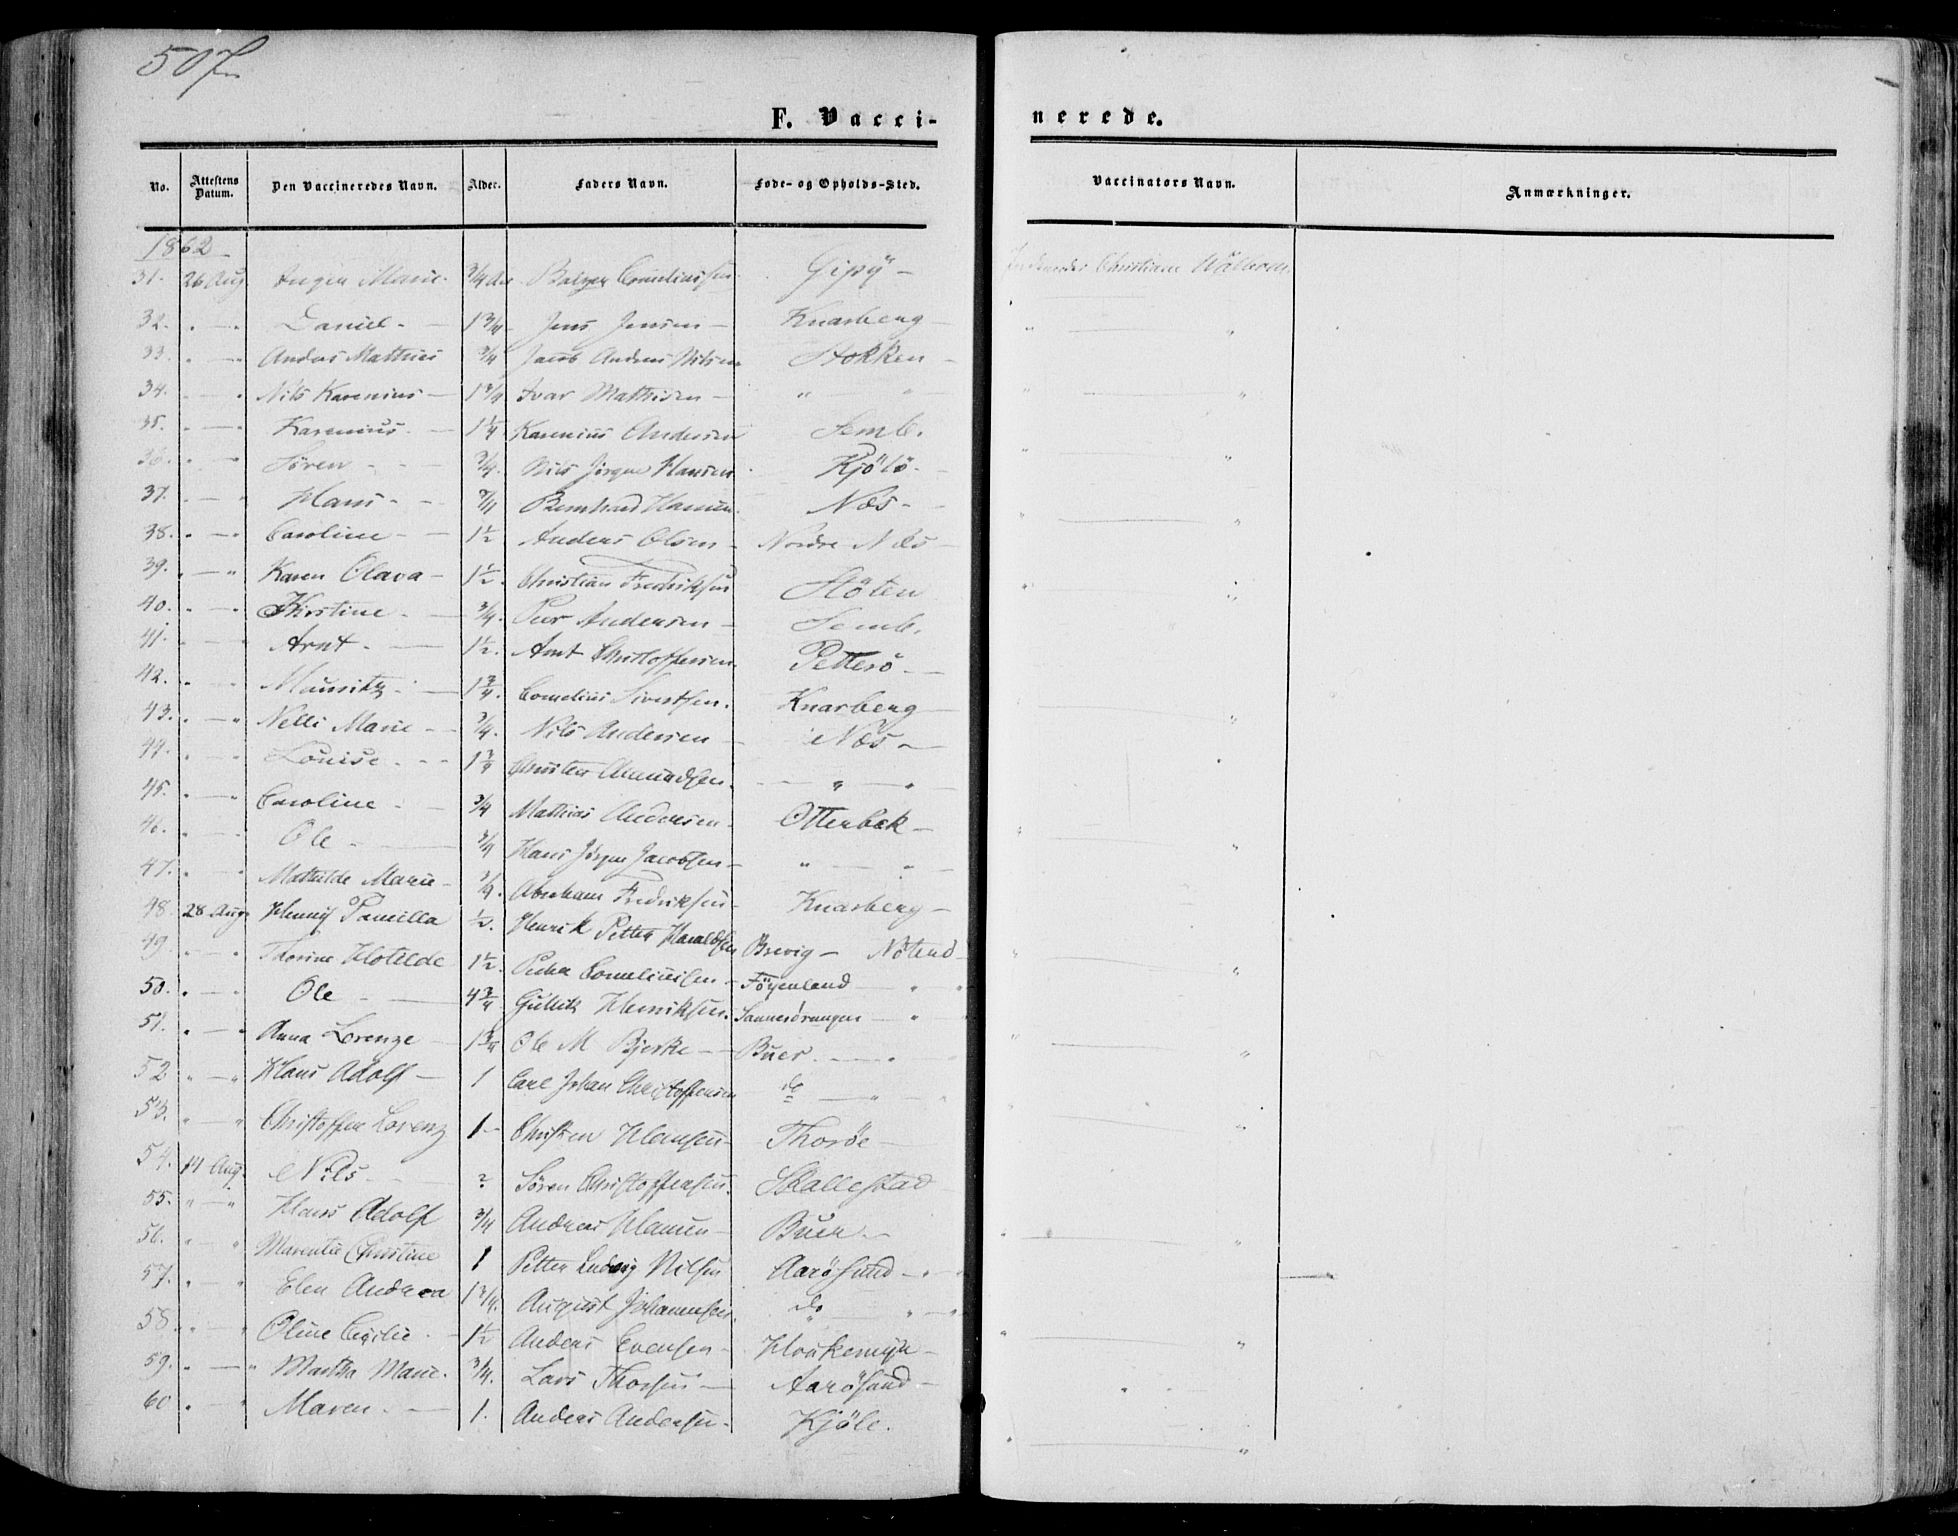 507
F. Vacci-
nerede.
No. Attestens Datum. Den Vaccineredes Navn. Alder. Faders Navn. Føde- og Opholds-Sted. Vaccinators Navn. Anmærkninger.
1862
31. 26 Aug Marie. 3/4 Aar Cornelius sen. Gipö - Jordemoder Christiane
32. " — " Daniel. — 1 3/4 - Jens Jensen — Knarberg —
33. " — " Anders Mathias 3/4 Jacob Andreas Nilsen Stokken -
34. " — " Nils Karenius — 1 3/4 Ivar Mathisen — " "
35. " — " Karenius. — 1 1/4 Karenius Andersen Semb.
36. " — " Søren - - - 3/4. Nils Jørgen Hansen. Kjölö -
37. " — " Hans - - 3/4 Bernhard Hansen. Næs - -
38. " — " Caroline - — 1 1/2 Anders Olsen — Nordre Næs —
39. " — " Karen Olava — 1 1/2. Christian Fredriksen Stöten
40. " — " Kirstine - — 3/4. Peer Andersen — Semb.
41. " — " Arnt. — 1 1/2. Arnt Christoffersen Petterö —
42. " — " Mauritz. — 1 3/4 Cornelius Sivertsen. Knarberg —
43. " — " Nelli Marie - - 3/4. Nils Andersen — Næs —
44. " — " Louise. - - 1 3/4 Christen Amundsen. — " — "
45. " — " Caroline - — 3/4 Mathias Andersen. Otterbek —
46. " — " Ole - — 3/4 Hans Jørgen Jacobsen — " "
47. " — " Mathilde Marie - 3/4. Abraham Fredriksen — Knarberg —
48. 28 Aug. Pamilla 1/2. Henrik Petter Haraldsen Brevig — Nöterö —
49. " — " Thorine Klotilde 1 1/2 Peder Corneliusen — Föyenland — " "
50. " — " Ole - — 4 3/4 Gullik Henriksen. — " "
51. " — " Anna Lorenze — 1 3/4 Ole M Bjerke - — Buer. — "
52 " — " Hans Adolf — 1 Carl Johan Christoffersen do — " — "
53. " — " Christoffer Lorenz 1 - Christen Hansen — Thoröe —
54. 14 Aug. Nils - — ? Sören Christoffersen. Skallestad
55. " — " Hans Adolf 3/4 Andreas Hansen — Buer. -
56. " — " Marentie Christine 1 Petter Ludvig Nilsen Aarösund — " "
57. " — " Elen Andrea 1 3/4. August Johannesen. do " — "
58. " — " Oline Cecilie. — 1 1/2 Anders Evensen —
59. " — " Martha Marie. 3/4. Lars Thorsen — Aarösund —
60 " — " Maren. — 1. Anders Andersen. Kjöle.